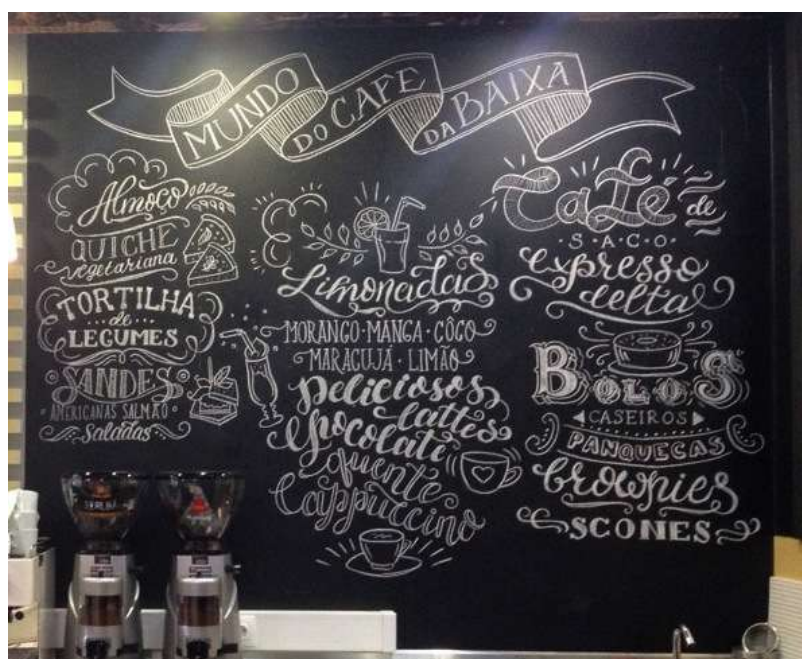 MUNDO DO CAFÉ DA BAIXA
Almoço
QUICHE
vegetariana
TORTILHA
de
LEGUMES
SANDES
AMERICANAS SALMÃO
Saladas
Limonadas
MORANGO · MANGA · CÔCO
MARACUJÁ · LIMÃO
Deliciosos
lattes
Chocolate
quente
Cappuccino
Café de
SACO
expresso
delta
BOLOS
CASEIROS
PANQUECAS
brownies
SCONES